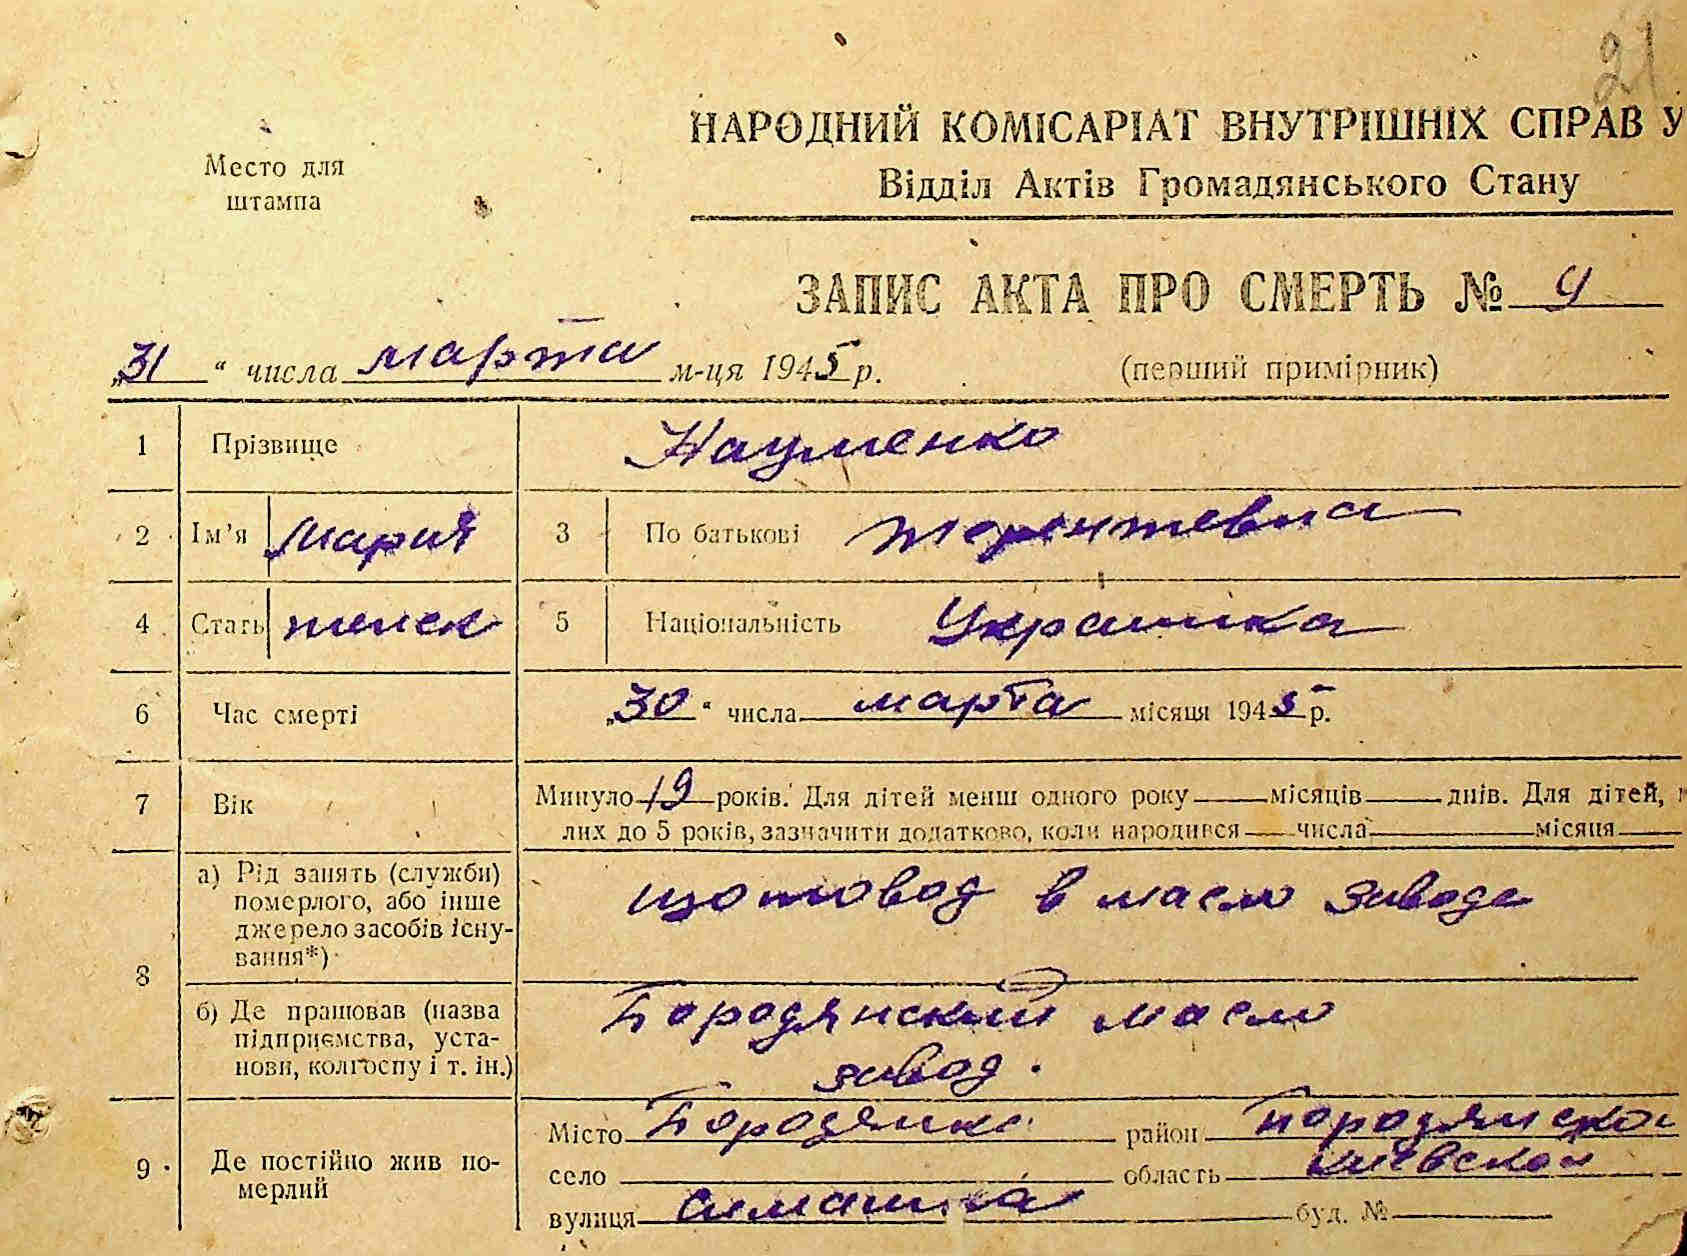 21
НАРОДНИЙ КОМІСАРІАТ ВНУТРІШНІХ СПРАВ У
Место для
штампа
Відділ Актів Громадянського Стану
ЗАПИС АКТА ПРО СМЕРТЬ № 9
„31“ числа марта м-ця 1945 р. (перший примірник)
1 Прізвище Науменко
2 Ім'я Мария 3 По батькові терентевна
4 Стать женск 5 Національність Украинка
6 Час смерті „30“ числа марта місяця 1945 р.
7 Вік Минуло 19 років. Для дітей менш одного року місяців днів. Для дітей,
лих до 5 років, зазначити додатково, коли народився числа місяця
8 а) Рід занять (служби)
померлого, або інше
джерело засобів існу-
вання*)
щотовод в масло заводе
б) Де працював (назва
підприємства, уста-
нови, колгоспу і т. ін.)
Бородянский масло
завод.
9 Де постійно жив по-
мерлий
Місто Бородянка район Бородянской
село область киевской
вулиця буд. №